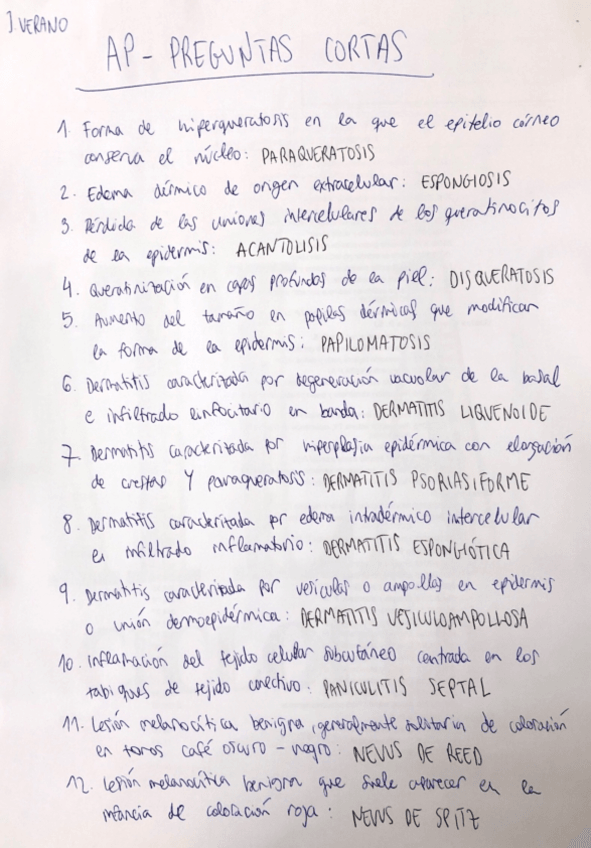 ] VERANO
AP - PREGUNTAS CORTAS
1. Forma de hiperqueratosis en la que el epitelio córneo
conserva el núcleo: PARAQUERATOSIS
2. Edema dérmico de origen extracelular: ESPONGIOSIS
3. Pérdida de las uniones intercelulares de los queratinocitos
de la epidermis: ACANTOLISIS
4. Queratinización en capas profundas de la piel: DISQUERATOSIS
5. Aumento del tamaño en papilas dérmicas que modifican
la forma de la epidermis: PAPILOMATOSIS
6. Dermatitis caracterizada por degeneración vacuolar de la basal
e infiltrado linfocitario en banda: DERMATITIS LIQUENOIDE
7. Dermatitis caracterizada por hiperplasia epidérmica con elongación
de crestas Y paraqueratosis: DERMATITIS PSORIASIFORME
8. Dermatitis caracterizada por edema intradérmico intercelular
e infiltrado inflamatorio: DERMATITIS ESPONGIÓTICA
9. Dermatitis caracterizada por vesículas o ampollas en epidermis
o unión dermoepidérmica: DERMATITIS VESICULOAMPOLLOSA
10. Inflamación del tejido celular subcutáneo centrada en los
tabiques de tejido conectivo: PANICULITIS SEPTAL
11. Lesión melanocítica benigna, generalmente solitaria de coloración
en tonos café oscuro - negro: NEVUS DE REED
12. Lesión melanocítica benigna que suele aparecer en la
infancia de coloración roja: NEVUS DE SPITZ